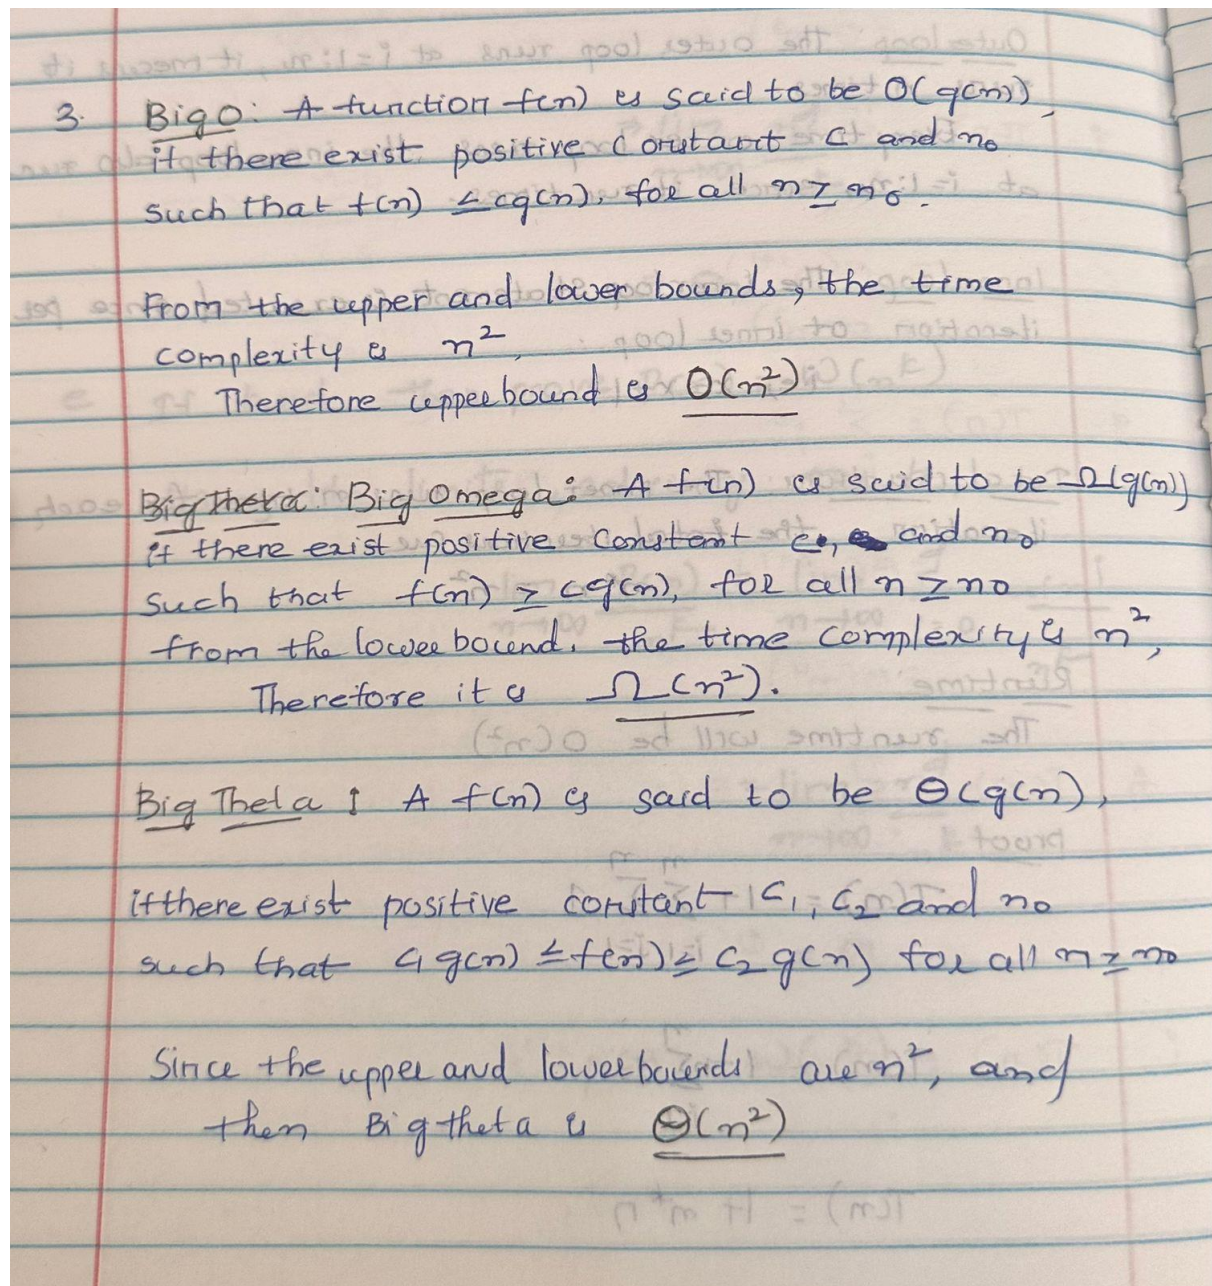 3. Big O: A function f(n) is said to be O(g(n)),
if there exist positive constant C and n₀
such that f(n) ≤ cg(n), for all n ≥ n₀.
From the upper and lower bounds, the time
complexity is n²,
Therefore upperbound is O(n²)
Big theta: Big Omega: A f(n) is said to be Ω(g(n))
if there exist positive Constant c, and n₀
Such that f(n) ≥ cg(n), for all n ≥ n₀
from the lower bound, the time complexity is n²,
Therefore it is Ω(n²).
Big Theta: A f(n) is said to be Θ(g(n),
if there exist positive constant C₁, C₂ and n₀
such that C₁g(n) ≤ f(n) ≤ C₂g(n) for all n ≥ n₀
Since the upper and lower bounds are n², and
then Big theta is Θ(n²)